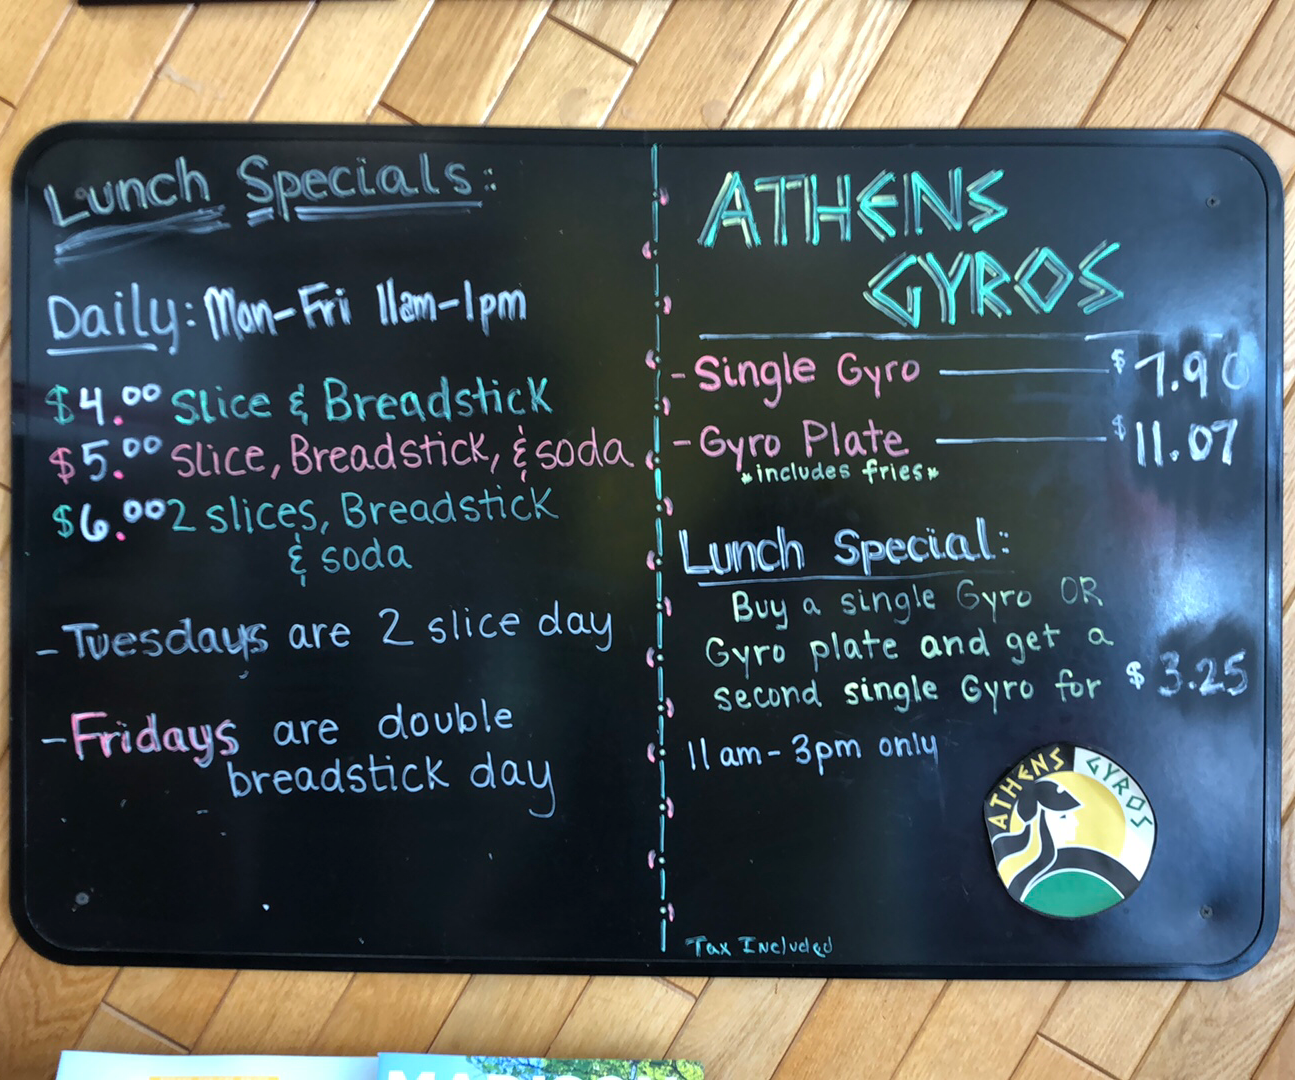 Lunch Specials:
Daily: Mon-Fri 11am-1pm
$4.00 Slice & Breadstick
$5.00 Slice, Breadstick, & soda
$6.00 2 slices, Breadstick
& soda
- Tuesdays are 2 slice day
- Fridays are double
breadstick day
ATHENS
GYROS
- Single Gyro $7.90
- Gyro Plate $11.07
*includes fries*
Lunch Special:
Buy a single Gyro OR
Gyro plate and get a
second single Gyro for $3.25
11am - 3pm only
ATHENS GYROS
Tax Included